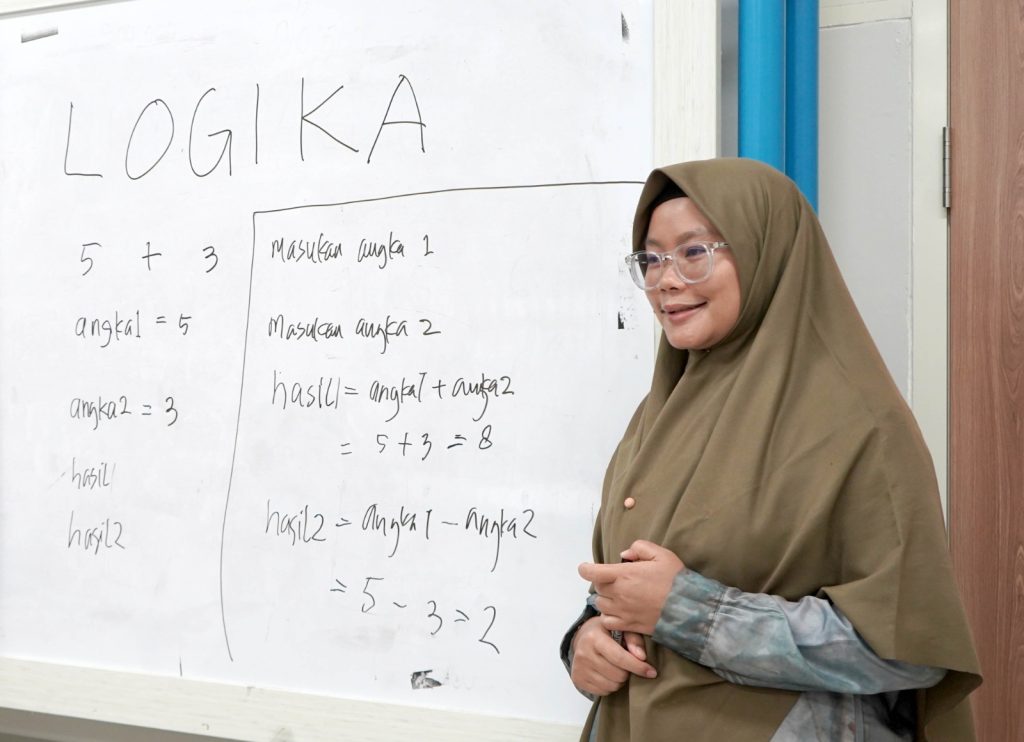 LOGIKA
5 + 3
angka1 = 5
angka2 = 3
hasil1
hasil2
Masukan angka 1
Masukan angka 2
hasil1 = angka1 + angka2
= 5 + 3 = 8
hasil2 = angka1 - angka2
= 5 - 3 = 2